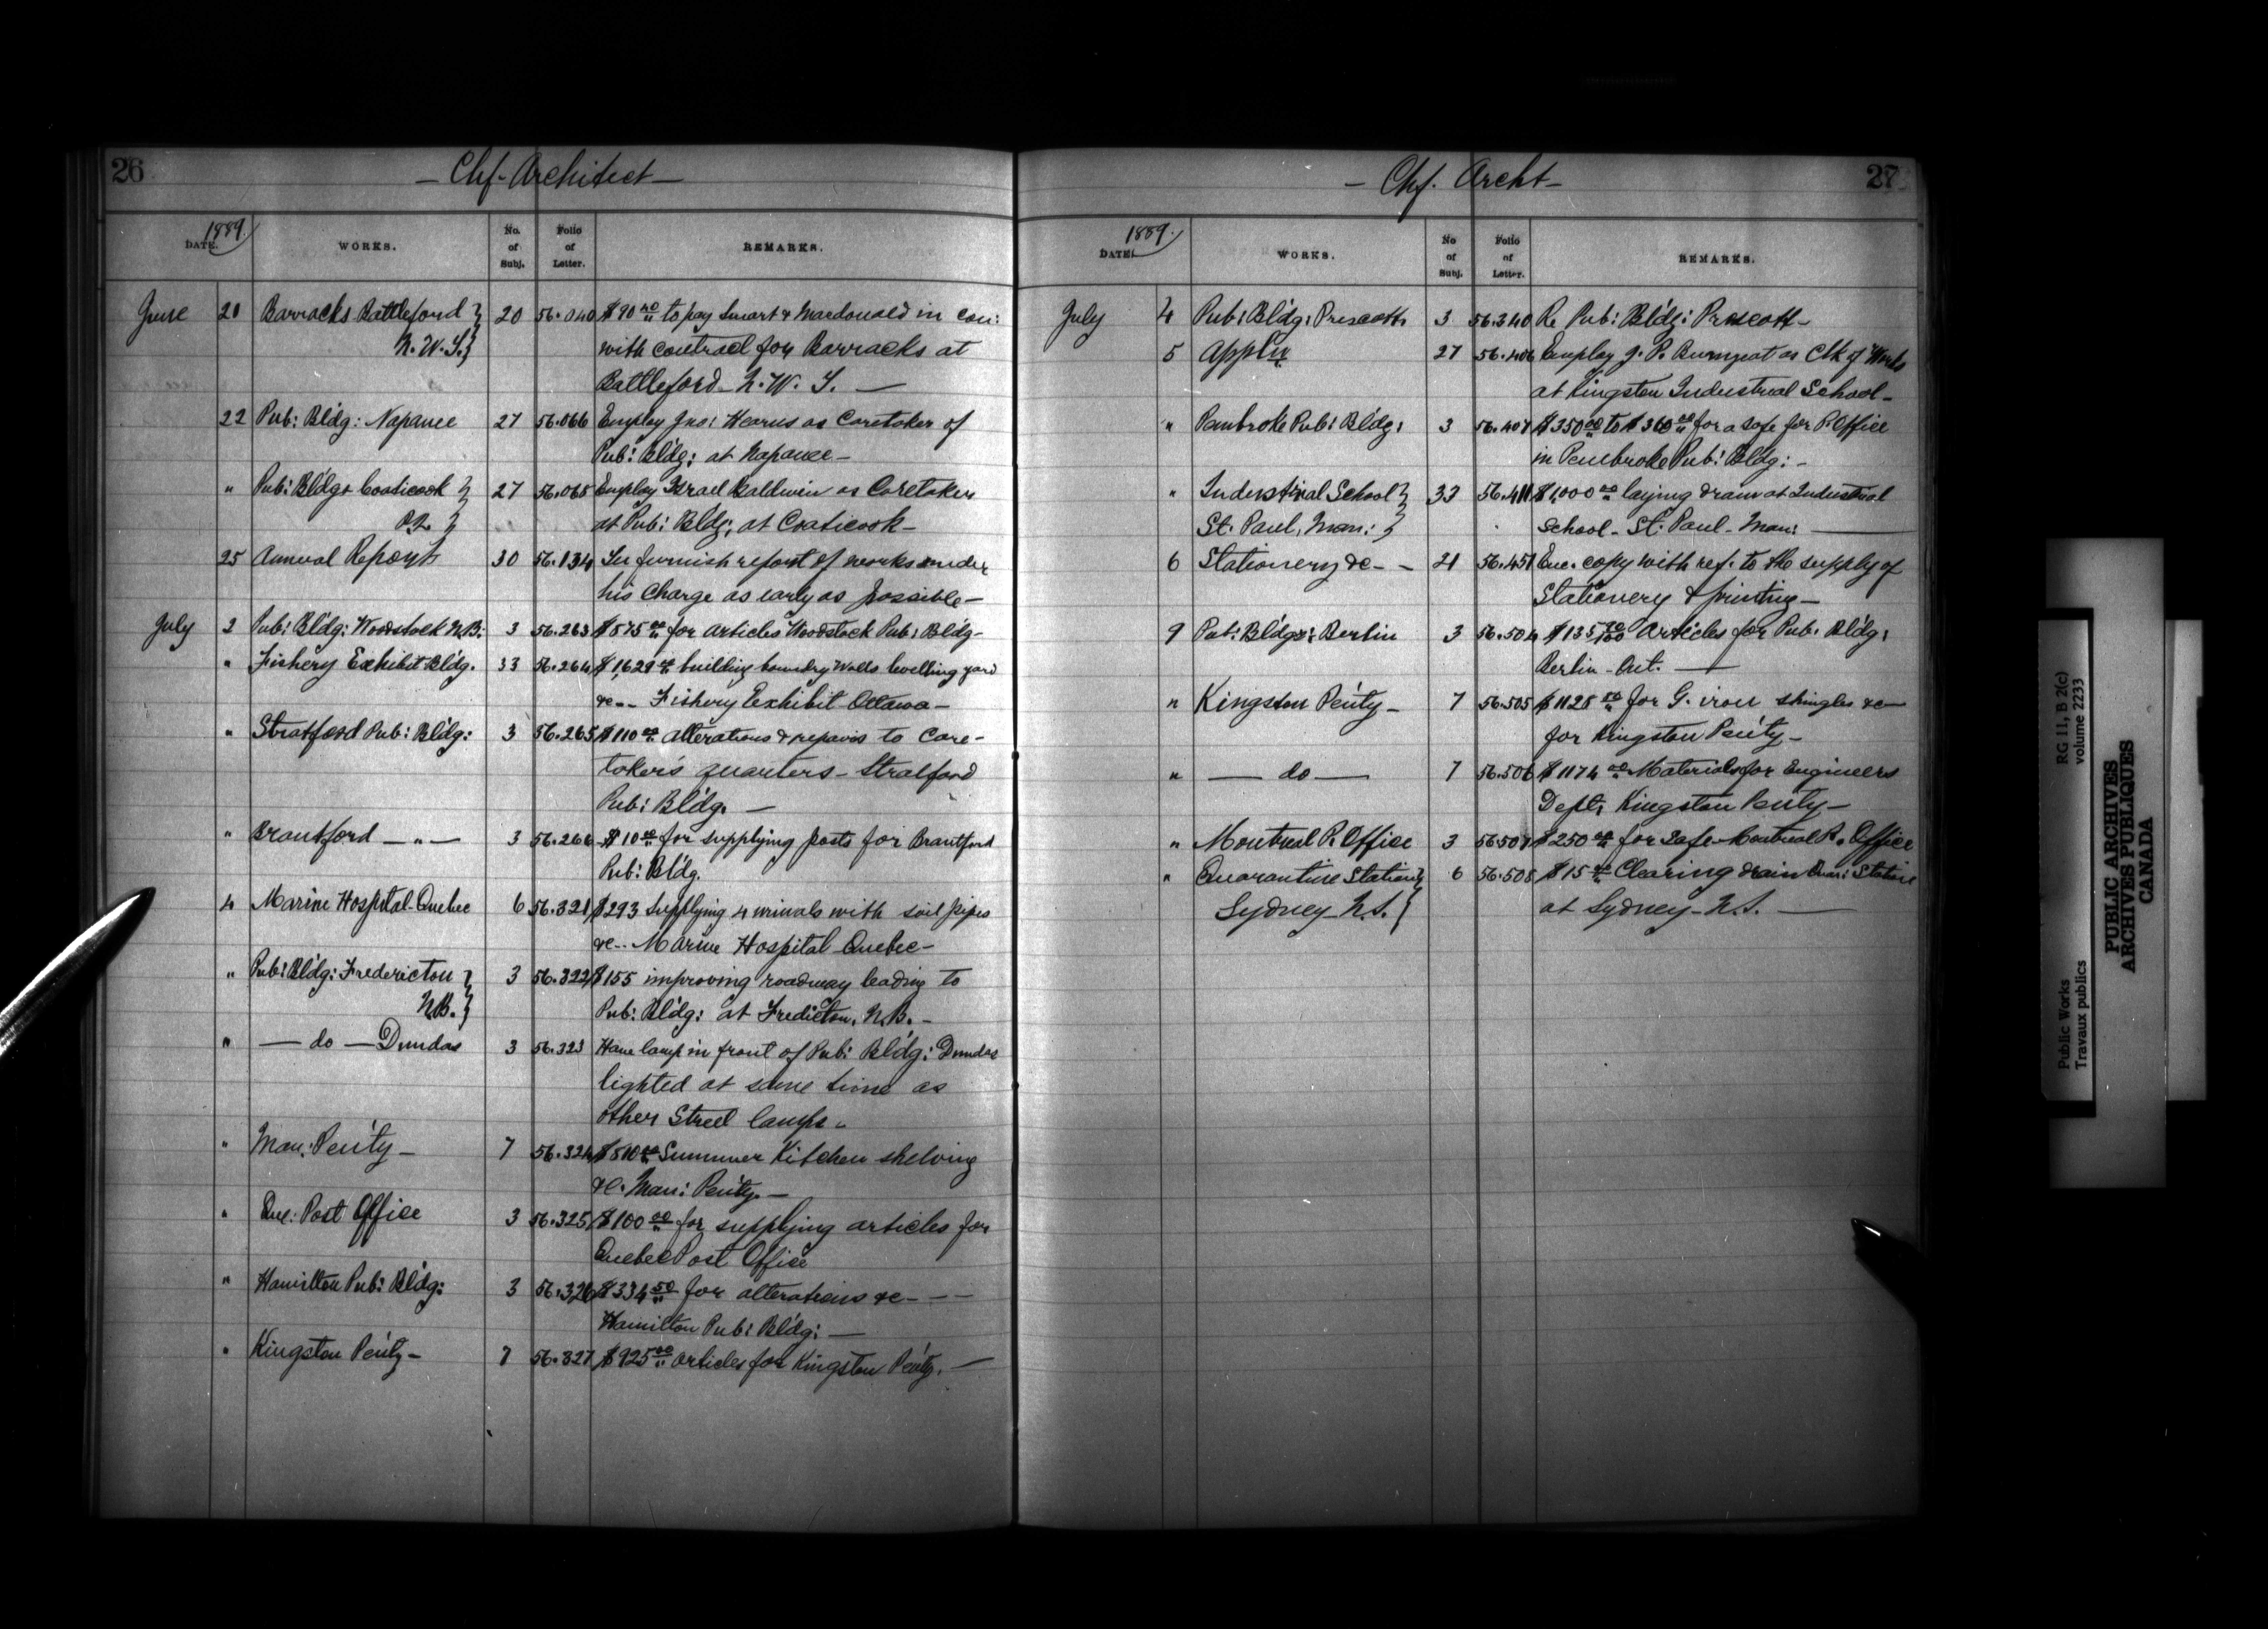 26
— Chf. Architect —
DATE. 1889. WORKS. No. of Subj. Folio of Letter. REMARKS.
June 20 Barracks Battleford } 20 56.040 $90 40/" to pay Smart & Macdonald in con:
N. W. T. } with contract for Barracks at
Battleford N. W. T. —
22 Pub: Bldg: Napanee 27 56.066 Employ Jno: as Caretaker of
Pub: Bldg: at Napanee —
" Pub: Bldg: Coaticook } 27 56.065 Employ Israel Baldwin as Caretaker
P.Q. } at Pub: Bldg: at Coaticook —
25 Annual Report 30 56.134 To furnish report of works under
his Charge as early as possible —
July 2 Pub: Bldg: Woodstock N.B: 3 56.263 $575 00/" for articles Woodstock Pub: Bldg —
" Fishery Exhibit Bldg. 33 56.264 $1,629 00/" building boundry Walls levelling yard
&c -- Fishery Exhibit Ottawa —
" Stratford Pub: Bldg: 3 56.265 $110 00/" alterations & repairs to Care-
taker's quarters — Stratford
Pub: Bldg. —
" Brantford — " — 3 56.266 $10 00/" for supplying posts for Brantford
Pub: Bldg.
4 Marine Hospital Quebec 6 56.321 $293 supplying 4 urinals with soil pipes
&c -- Marine Hospital Quebec —
" Pub: Bldg: Fredericton } 3 56.322 $155 improving roadway leading to
N.B. } Pub: Bldg: at Fredicton, N.B. —
" — do — Dundas 3 56.323 Have lamp in front of Pub: Bldg: Dundas
lighted at same time as
other Street lamps.
" Man: Pen'ty — 7 56.324 $510 00/" Summer Kitchen shelving
&c. Man: Pen'ty. —
" Que: Post Office 3 56.325 $100 00/" for supplying articles for
Quebec Post Office
" Hamilton Pub: Bldg: 3 56.326 $334 50/" for alterations &c — — —
Hamilton Pub: Bldg: —
" Kingston Pen'ty — 7 56.327 $925 00/" articles for Kingston Pen'ty. —
27
— Chf. Archt —
DATE. 1889. WORKS. No of Subj. Folio of Letter. REMARKS.
July 4 Pub: Bldg: Prescott 3 56.340 Re Pub: Bldg: Prescott —
5 Appln 27 56.406 Employ J. P. as Clk of Works
at Kingston Industrial School —
" Pembroke Pub: Bldg: 3 56.407 $350 00/" to $360 00/" for a safe for P. Office
in Pembroke Pub: Bldg: —
" Industrial School } 33 56.411 $1,000 00/" laying drain at Industrial
St. Paul, Man: } School — St. Paul — Man: —
6 Stationery &c — — 21 56.451 Enc. copy with ref. to the supply of
Stationery & printing —
9 Pub: Bldg: Berlin 3 56.504 $135 70/100 Articles for Pub: Bldg:
Berlin — Ont. —
" Kingston Pen'ty — 7 56.505 $1128 50/" for G. iron shingles &c —
for Kingston Pen'ty —
" — do — 7 56.506 $1174 00/" Materials for Engineers
Dept: Kingston Pen'ty —
" Montreal P. Office 3 56507 $250 00/" for Safe — Montreal P. Office
" Quarantine Station } 6 56.508 $15 00/" Clearing drain Quar: Station
Sydney N.S. } at Sydney — N.S. —
RG 11, B 2(c)
volume 2233
Public Works
Travaux publics
PUBLIC ARCHIVES
ARCHIVES PUBLIQUES
CANADA